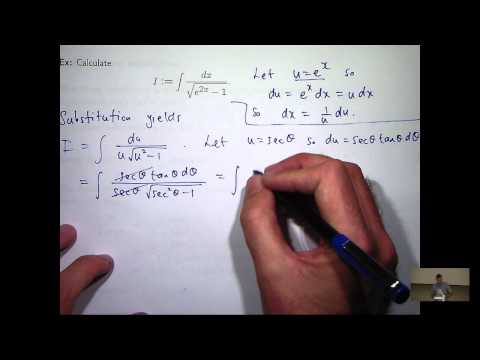 Ex: Calculate
I := ∫ dx / √(e^{2x} − 1)
Let u = e^x so
du = e^x dx = u dx
so dx = 1/u du.
Substitution yields
I = ∫ du / (u√(u² − 1)) . Let u = secθ so du = secθ tanθ dθ
= ∫ secθ tanθ dθ / (secθ √(sec²θ − 1)) = ∫